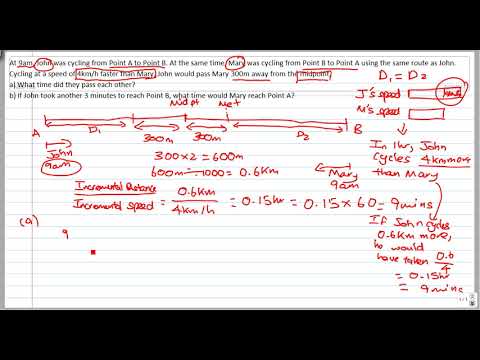 At 9am, John was cycling from Point A to Point B. At the same time, Mary was cycling from Point B to Point A using the same route as John.
Cycling at a speed of 4km/h faster than Mary, John would pass Mary 300m away from the midpoint.
a) What time did they pass each other?
b) If John took another 3 minutes to reach Point B, what time would Mary reach Point A?
D₁ = D₂
J's speed 4km/h
M's speed
Midpt Met
A D₁ 300m 300m D₂ B
John
9am
Mary
9am
300×2 = 600m
600m ÷ 1000 = 0.6km
Incremental Distance
Incremental speed
= 0.6km / 4km/h = 0.15hr = 0.15 × 60 = 9mins
In 1hr, John
cycles 4km more
than Mary
If John cycles
0.6km more,
he would
have taken 0.6/4
= 0.15hr
= 9mins
(a)
9
1/1